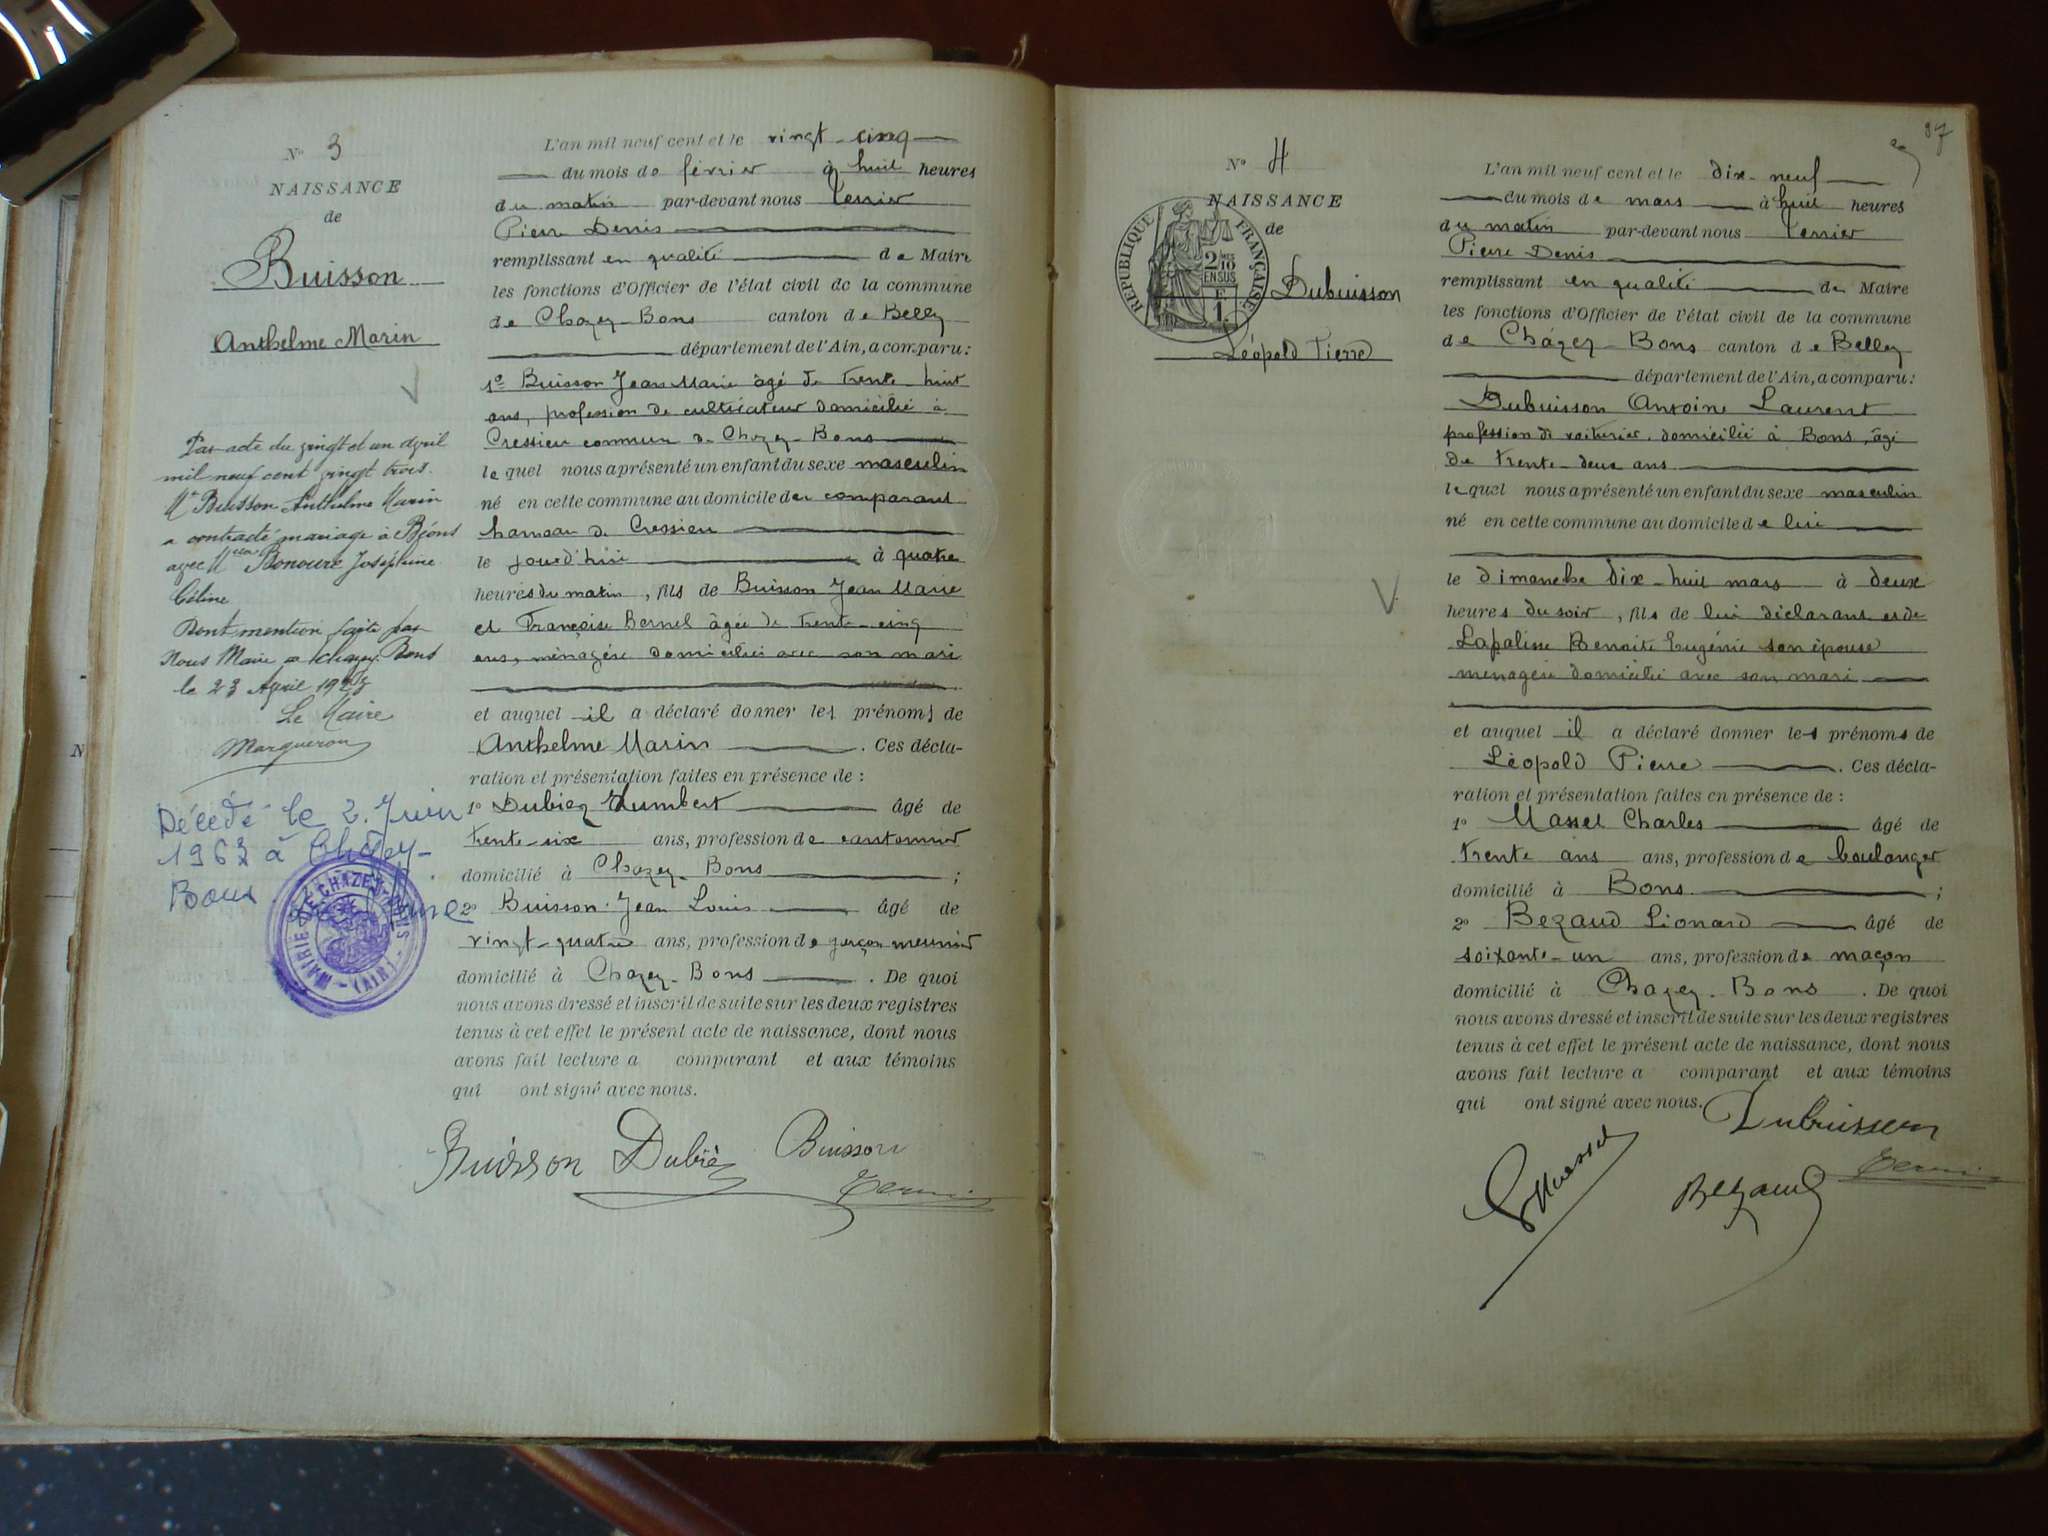 N° 3
NAISSANCE
de
Buisson
Anthelme Marin
Par acte du vingt et un avril
mil neuf cent vingt trois
Mr Buisson Anthelme Marin
a contracté mariage à Béons
avec Melle Josephine
Céline
Dont mention faite par
Nous Maire de Chazey-Bons
le 23 Avril 1923
Le Maire
Marqueron
Décédé le 2 Juin
1963 à Chazey-
Bons
MAIRIE DE CHAZEY-BONS
(AIN)
L'an mil neuf cent et le vingt-cinq
du mois de février à huit heures
du matin par-devant nous Terrier
Pierre Denis
remplissant en qualité de Maire
les fonctions d'Officier de l'état civil de la commune
de Chazey-Bons canton de Belley
département de l'Ain, a comparu:
1° Buisson Jean Marie âgé de trente-huit
ans, profession de cultivateur domicilié à
Cressieu commune de Chazey-Bons
lequel nous a présenté un enfant du sexe masculin
né en cette commune au domicile du comparant
hameau de Cressieu
le jourd'hui à quatre
heures du matin, fils de Buisson Jean Marie
et Françoise Bernel âgée de trente-cinq
ans, ménagère domiciliée avec son mari
et auquel il a déclaré donner les prénoms de
Anthelme Marin. Ces décla-
ration et présentation faites en présence de :
1° Dubiez Humbert âgé de
trente-six ans, profession de cantonnier
domicilié à Chazey-Bons ;
2° Buisson Jean Louis âgé de
vingt-quatre ans, profession de garçon meunier
domicilié à Chazey-Bons. De quoi
nous avons dressé et inscrit de suite sur les deux registres
tenus à cet effet le présent acte de naissance, dont nous
avons fait lecture a comparant et aux témoins
qui ont signé avec nous.
Buisson Dubiez Buisson
Terrier
97
N° 4
NAISSANCE
de
Dubuisson
Léopold Pierre
RÉPUBLIQUE FRANÇAISE
2/10
EN SUS
1 F.
L'an mil neuf cent et le dix-neuf
du mois de mars à huit heures
du matin par-devant nous Terrier
Pierre Denis
remplissant en qualité de Maire
les fonctions d'Officier de l'état civil de la commune
de Chazey-Bons canton de Belley
département de l'Ain, a comparu:
Dubuisson Antoine Laurent
profession de voiturier, domicilié à Bons, âgé
de trente-deux ans
lequel nous a présenté un enfant du sexe masculin
né en cette commune au domicile de lui
le dimanche dix-huit mars à deux
heures du soir, fils de lui déclarant et de
Lapalisse Benoite Eugénie son épouse
ménagère domiciliée avec son mari
et auquel il a déclaré donner les prénoms de
Léopold Pierre. Ces décla-
ration et présentation faites en présence de :
1° Massel Charles âgé de
trente ans ans, profession de boulanger
domicilié à Bons ;
2° Bezaud Léonard âgé de
soixante-un ans, profession de maçon
domicilié à Chazey-Bons. De quoi
nous avons dressé et inscrit de suite sur les deux registres
tenus à cet effet le présent acte de naissance, dont nous
avons fait lecture a comparant et aux témoins
qui ont signé avec nous.
Dubuisson
Massel
Bezaud
Terrier